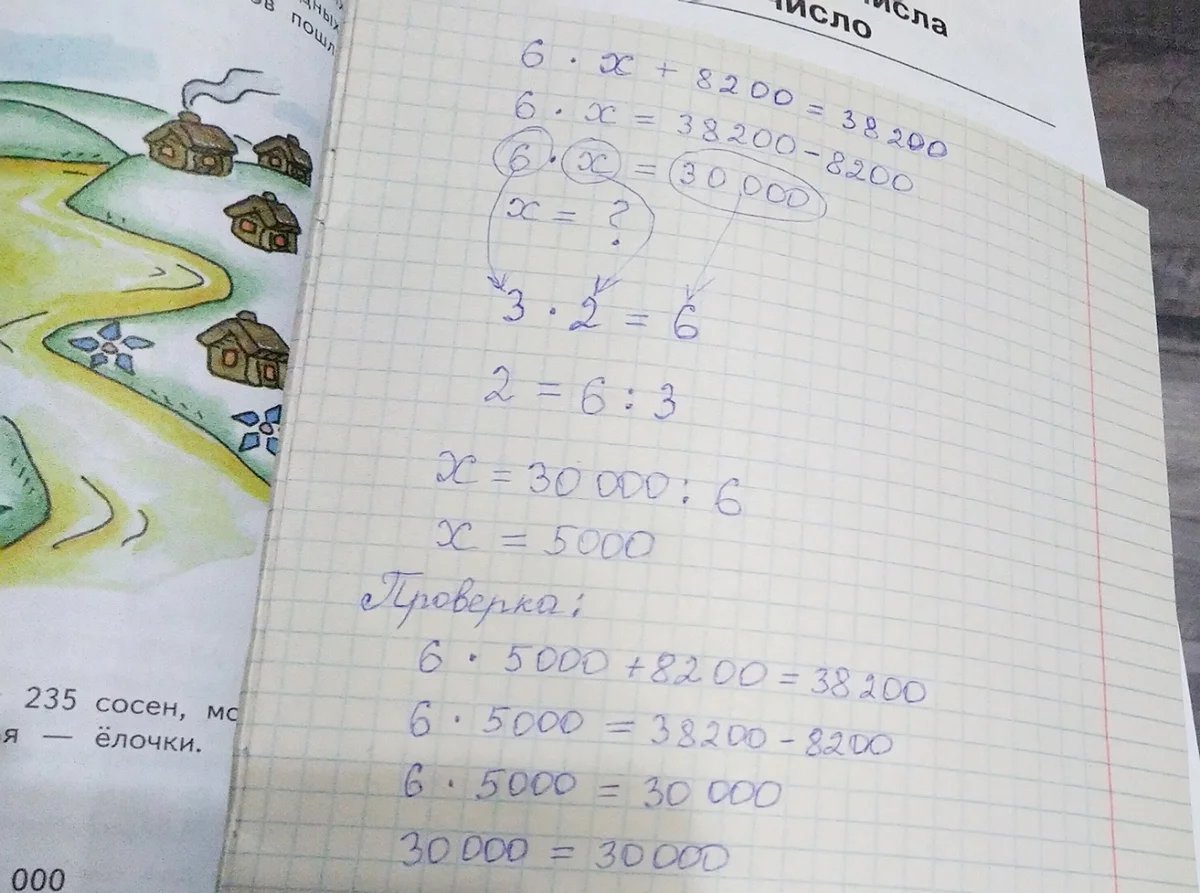 пошл
числа
число
6 · x + 8200 = 38200
6 · x = 38200 - 8200
6 · x = 30 000
x = ?
3 · 2 = 6
2 = 6 : 3
x = 30 000 : 6
x = 5000
Проверка:
6 · 5000 + 8200 = 38200
6 · 5000 = 38200 - 8200
6 · 5000 = 30 000
30 000 = 30 000
235 сосен,
— ёлочки.
000